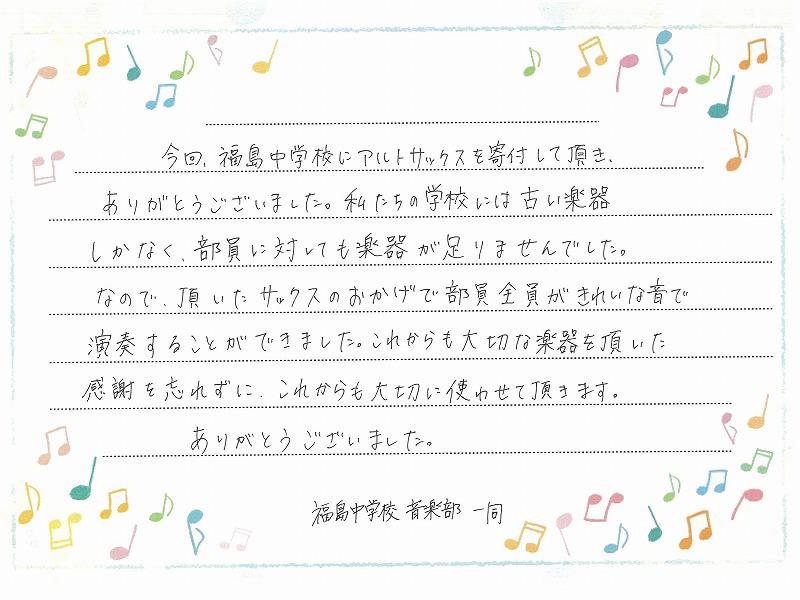 今回、福島中学校にアルトサックスを寄付して頂き、
ありがとうございました。私たちの学校には古い楽器
しかなく、部員に対しても楽器が足りませんでした。
なので、頂いたサックスのおかげで部員全員がきれいな音で
演奏することができました。これからも大切な楽器を頂いた
感謝を忘れずに、これからも大切に使わせて頂きます。
ありがとうございました。
福島中学校 音楽部 一同